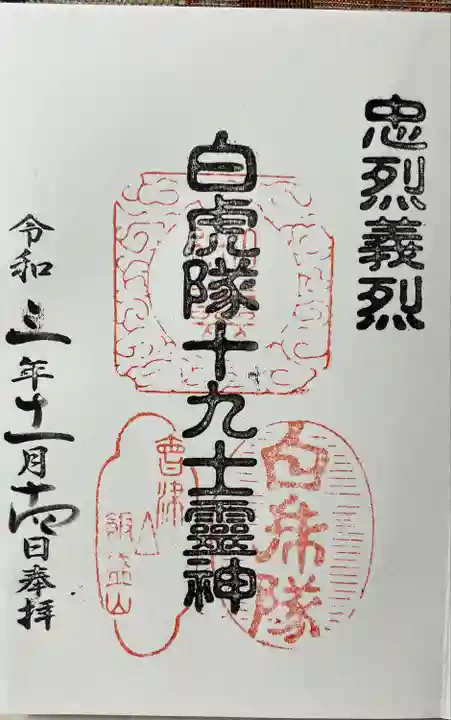 忠烈義烈
白虎隊十九士靈神
白乕隊
會津
飯盛山
令和三年十一月十四日奉拝